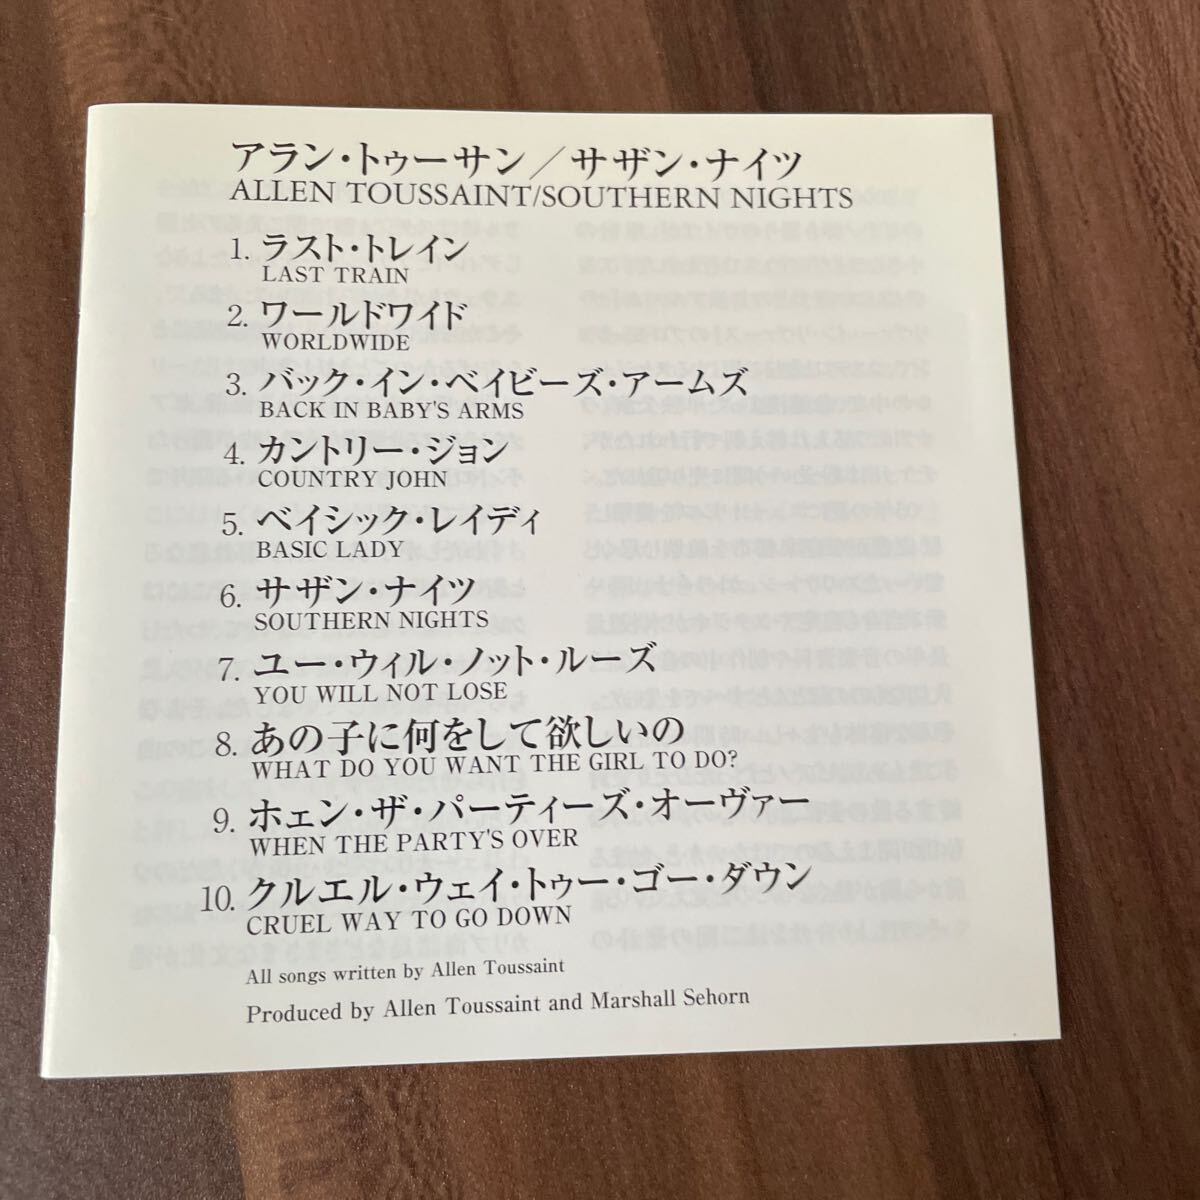 アラン・トゥーサン／サザン・ナイツ
ALLEN TOUSSAINT/SOUTHERN NIGHTS
1. ラスト・トレイン
LAST TRAIN
2. ワールドワイド
WORLDWIDE
3. バック・イン・ベイビーズ・アームズ
BACK IN BABY'S ARMS
4. カントリー・ジョン
COUNTRY JOHN
5. ベイシック・レイディ
BASIC LADY
6. サザン・ナイツ
SOUTHERN NIGHTS
7. ユー・ウィル・ノット・ルーズ
YOU WILL NOT LOSE
8. あの子に何をして欲しいの
WHAT DO YOU WANT THE GIRL TO DO?
9. ホェン・ザ・パーティーズ・オーヴァー
WHEN THE PARTY'S OVER
10. クルエル・ウェイ・トゥー・ゴー・ダウン
CRUEL WAY TO GO DOWN
All songs written by Allen Toussaint
Produced by Allen Toussaint and Marshall Sehorn